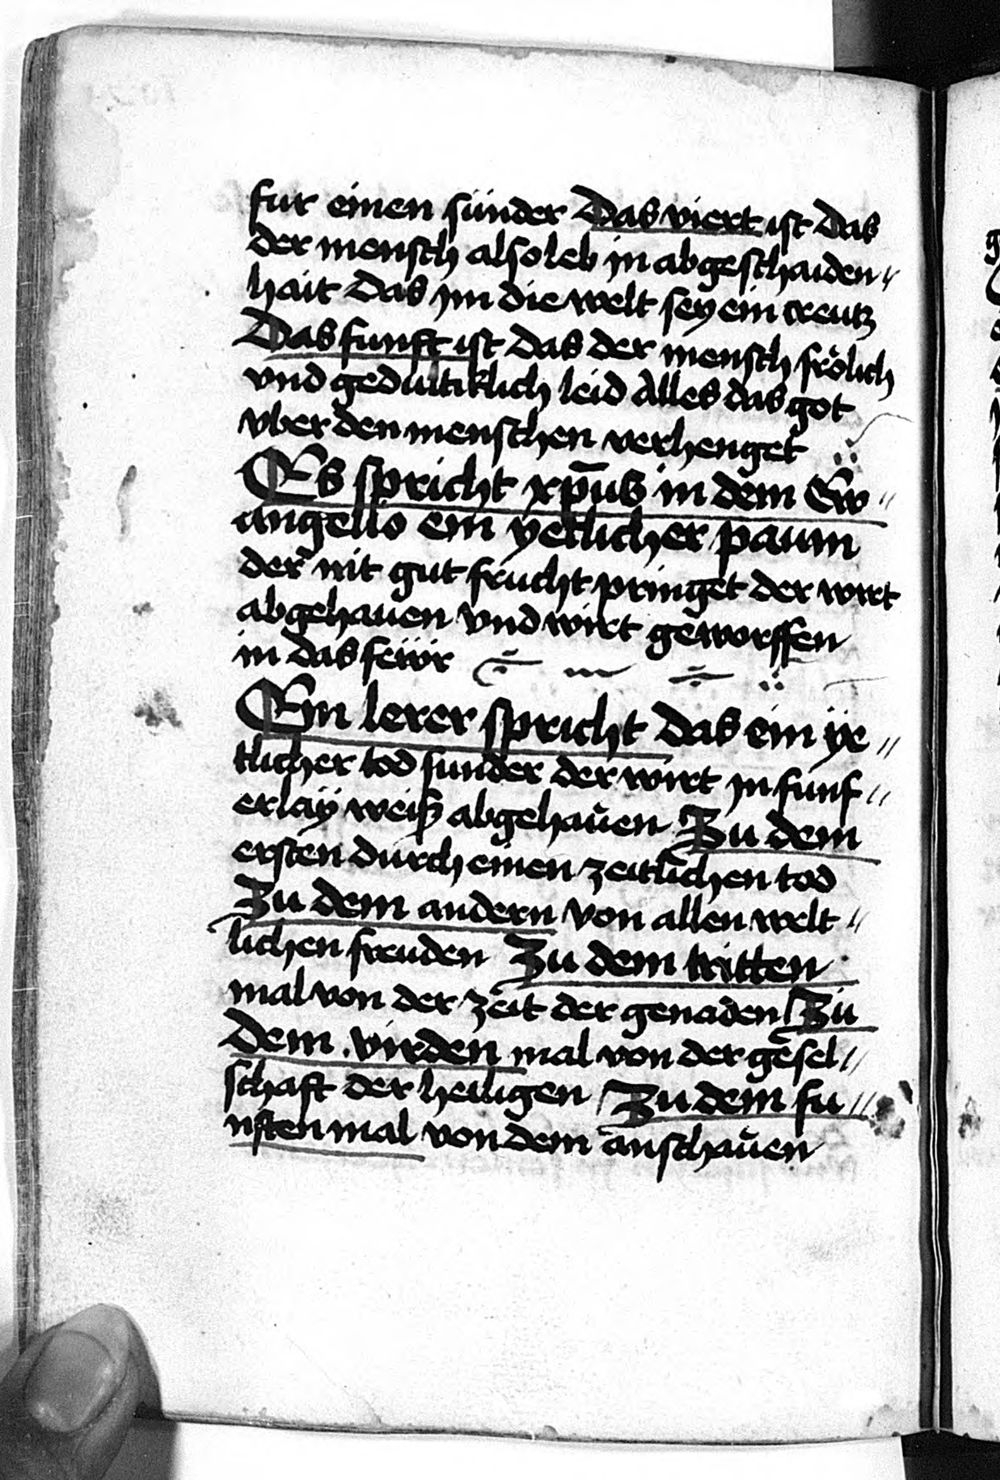 fur einen sünder Das viert ist Das
der mensch also leb in abgeschaiden〃
hait Das im die welt sey ein creutz
Das funft ist das der mensch frölich
vnd gedultiklich leid Alles das got
vber den menschen verhenget
Es spricht xp̄us in dem Ew〃
angelio ein yetlicher paum
der nit gut frücht pringet der wirt
abgehauen vnd wirt geworffen
in das fewr
Ein lerer spricht das ein ÿe〃
tlicher tod sunder der wirt in funf〃
erlaÿ weiß abgehauen Zu dem
ersten durch einen zeitlichen tod
Zu dem andern von allen welt〃
lichen freuden Zu dem tritten
mal von der zeit der genaden Zu
dem virden mal von der gesel〃
schaft der heiligen Zu dem fu〃
nften mal von dem anschauen